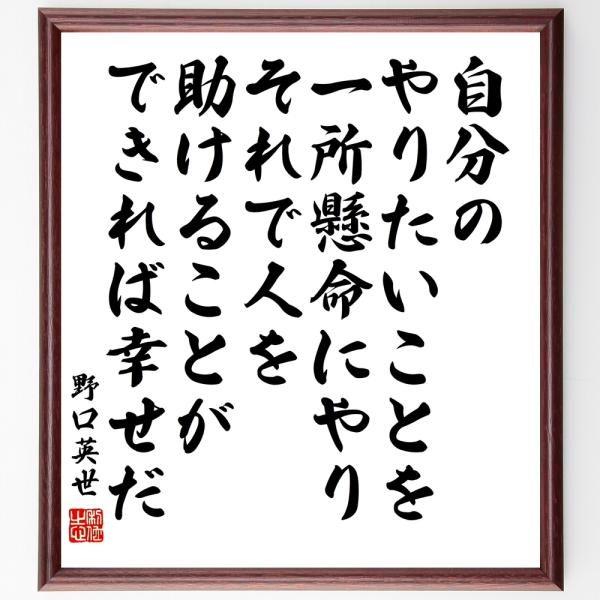 自分の
やりたいことを
一所懸命にやり
それで人を
助けることが
できれば幸せだ
野口英世